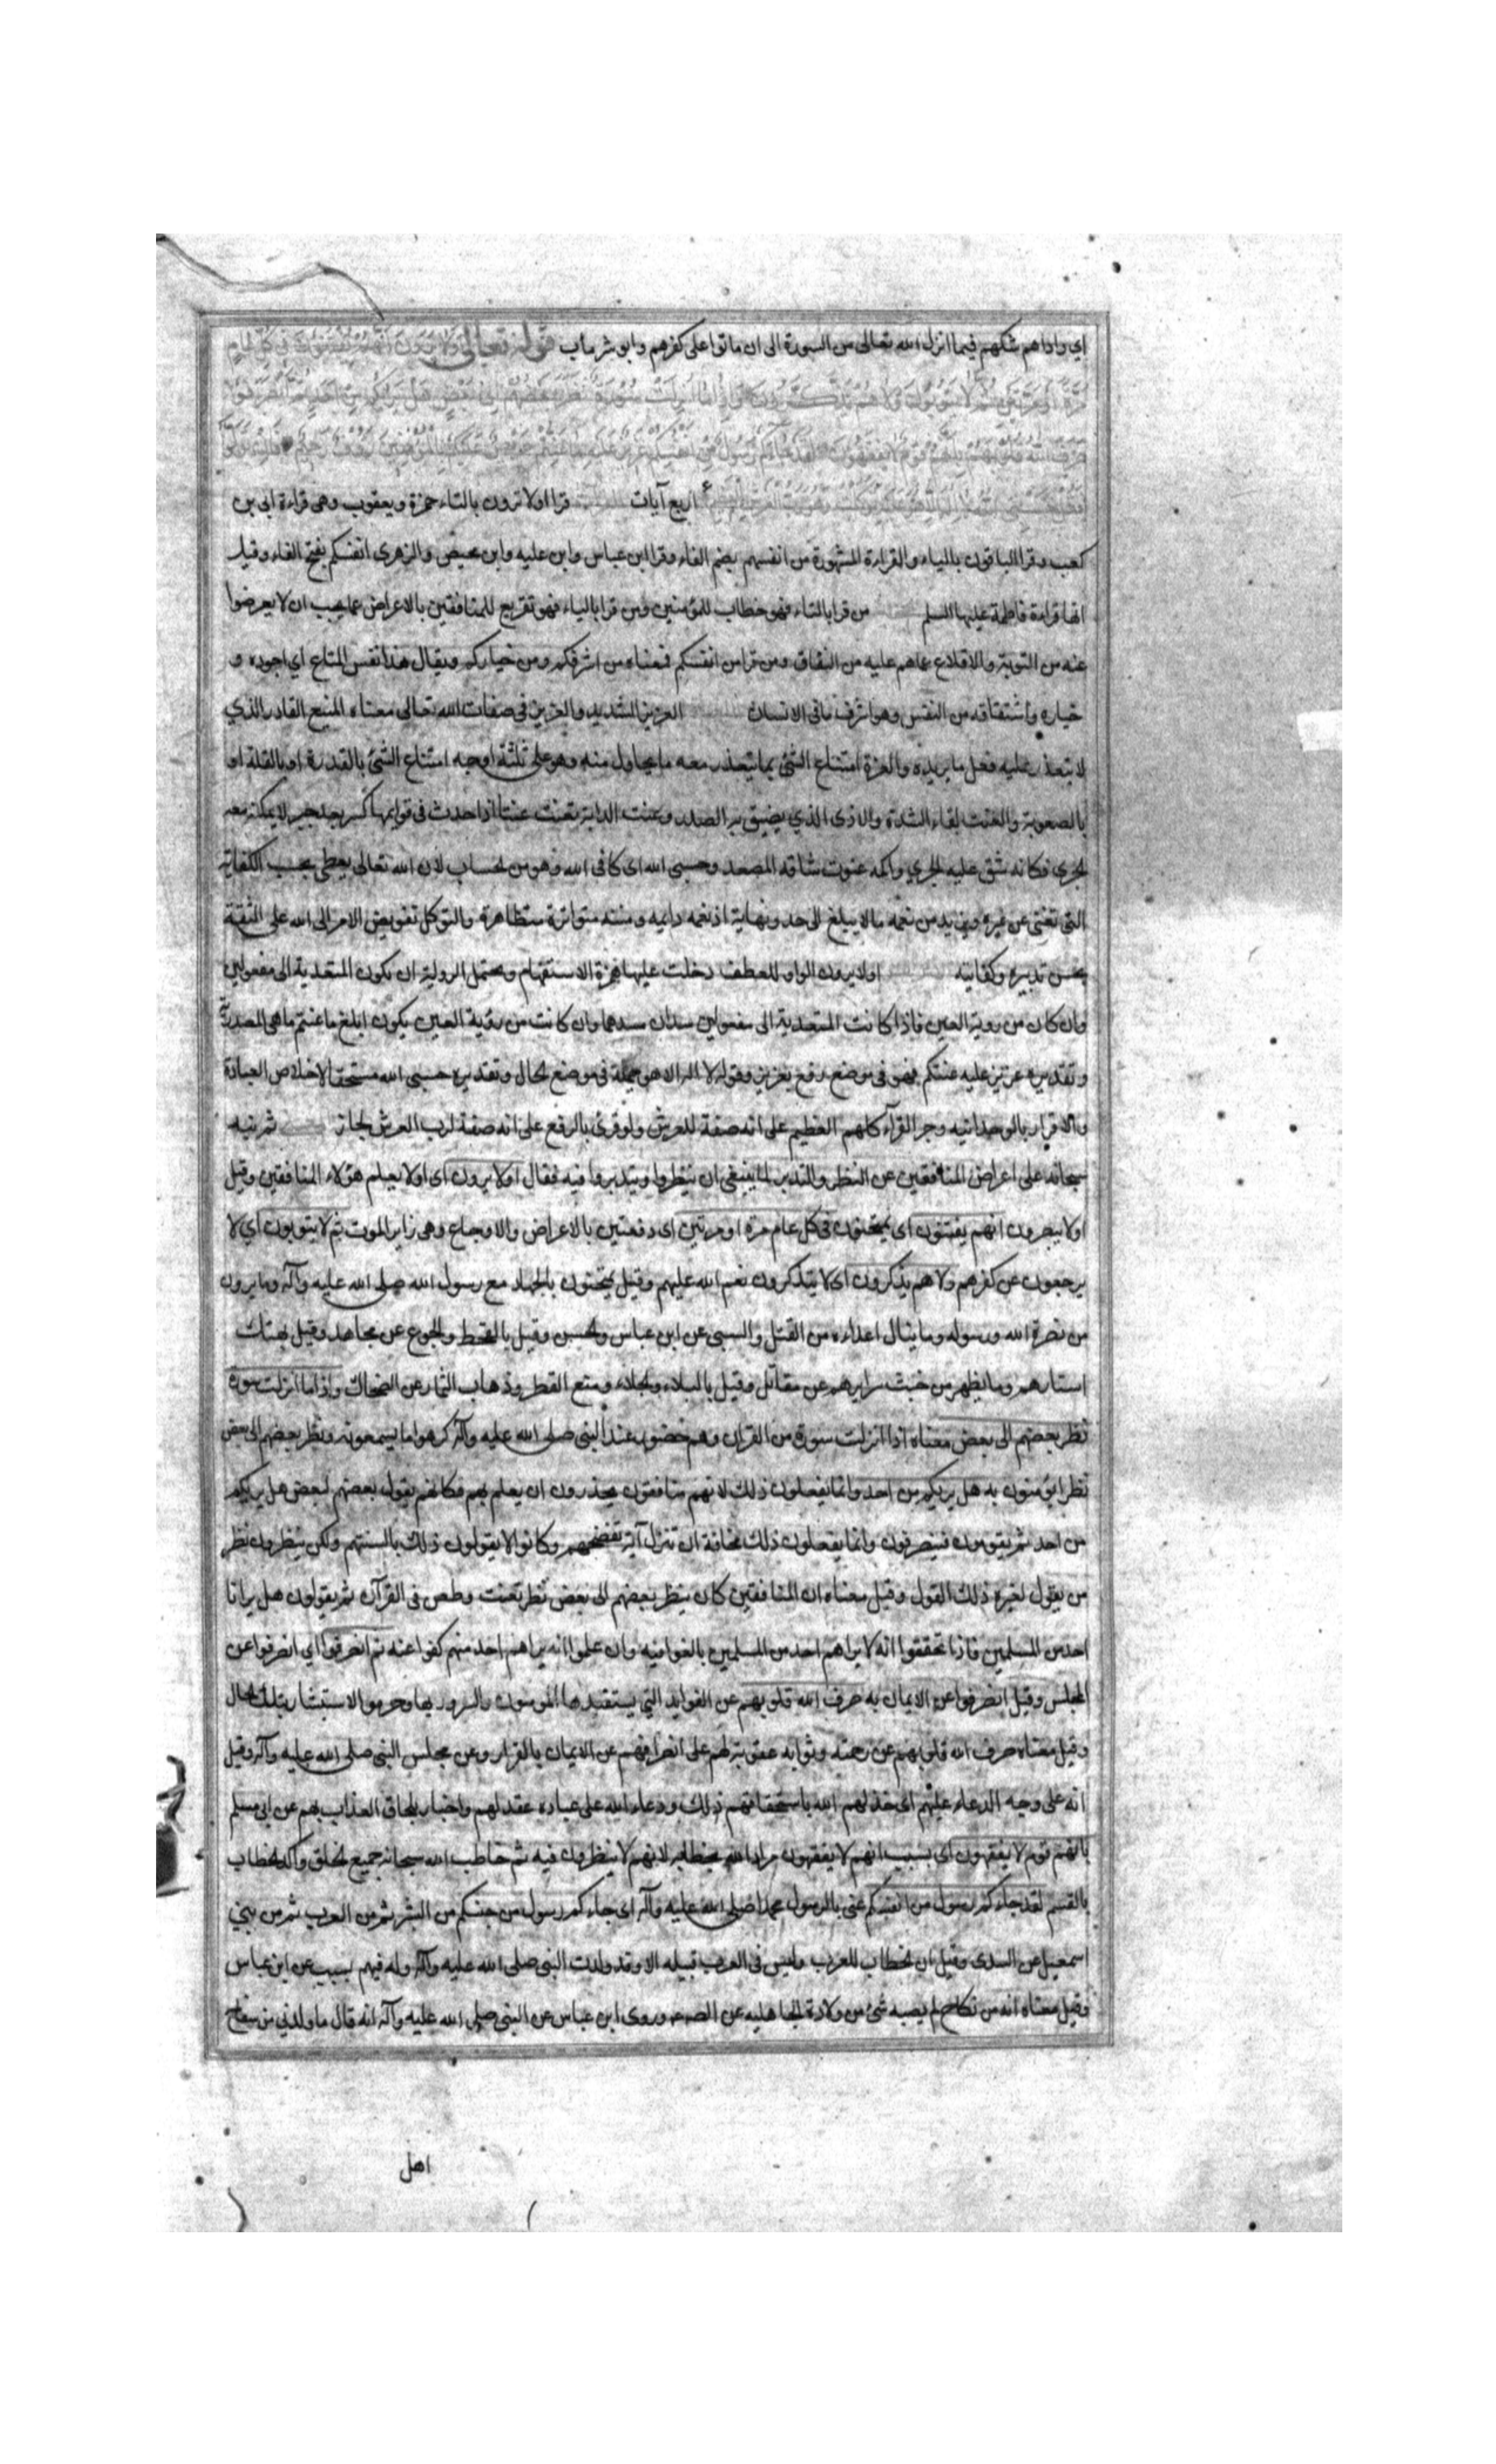 اي واداهم شكهم فيما انزل الله تعالى من السورة الى ان ماتوا على كفرهم وابو شر ماب قوله تعالى اولا يرون انهم يفتنون في كل عام
مرة او مرتين ثم لا يتوبون ولا هم يذكرون واذا ما انزلت سورة نظر بعضهم الى بعض هل يراكم من احد ثم انصرفوا
صرف الله قلوبهم بانهم قوم لا يفقهون لقد جاءكم رسول من انفسكم عزيز عليه ما عنتم حريص عليكم بالمؤمنين رؤف رحيم فان تولوا
فقل حسبي الله لا اله الا هو عليه توكلت وهو رب العرش العظيم اربع آيات قرا اولا ترون بالتاء حمزة ويعقوب وهى قراءة ابى بن
كعب وقرا الباقون بالياء والقراءة المشهورة من انفسهم بضم الفاء وقرا ابن عباس وابن عليه وابن محيص والزهرى انفسكم بفتح الفاء وقيل
انها قراءة فاطمة عليها السلم من قرا بالتاء فهو خطاب للمؤمنين ومن قرا بالياء فهو تقريع للمنافقين بالاعراض عما يجب ان لا يعرضوا
عنه من التوبة والاقلاع عما هم عليه من النفاق ومن قرا من انفسكم فمعناه من اشرفكم ومن خياركم ويقال هذا نفس المتاع اى اجوده و
خياره واشتقاقه من النفس وهو اشرف ما فى الانسان العزيز الشديد والعزيز في صفات الله تعالى معناه المنيع القادر الذي
لا يتعذر عليه فعل ما يريده والعزة امتناع الشئ بما يتعذر معه ما يحاول منه وهو على ثلثة اوجه امتناع الشئ بالقدرة او بالقلة او
بالصعوبة والعنت لقاء الشدة والاذى الذي يضيق به الصدر وعنت الدابة تعنت عنتا اذا حدث فى قوايمها كسر بعد جبر لا يمكنه معه
الجري فكانه شق عليه الجري واكمه عنوت شاقه المصعد وحسبى الله اى كافى الله وهو من الحساب لان الله تعالى يعطى بحسب الكفاية
التى تغنى عن غيره ويزيد من نعمه ما لا يبلغ الى حد ونهاية اذ نعمه دايمه ومننه متواترة متظاهرة والتوكل تفويض الامر الى الله على الثقة
بحسن تدبيره وكفايته اولا يرون الواو للعطف دخلت عليها همزة الاستفهام ويحتمل الروية ان تكون المتعدية الى مفعولين
وان كان من روية العين فاذا كانت المتعدية الى مفعولين سد ان مسدهما وان كانت من رؤية العين يكون ابلغ ما عنتم ما هى المصدرية
وتقديره عزيز عليه عنتكم فهو فى موضع رفع بعزيز وقوله لا اله الا هو جملة فى موضع الحال وتقديره حسبى الله مستحقا لاخلاص العبادة
والاقرار بالوحدانيه وجر القرآء كلهم العظيم على انه صفة للعرش ولو قرئ بالرفع على انه صفة لرب العرش لجاز ثم نبه
سبحانه على اعراض المنافقين عن النظر والتدبر لما ينبغى ان ينظروا ويتدبروا فيه فقال اولا يرون اى اولا يعلم هؤلاء المنافقين وقيل
اولا يبصرون انهم يفتنون اى يمتحنون فى كل عام مرة او مرتين اى دفعتين بالاعراض والاوجاع وهى زاير الموت ثم لا يتوبون اي لا
يرجعون عن كفرهم ولا هم يذكرون اى لا يتذكرون نعم الله عليهم وقيل يمتحنون بالجهاد مع رسول الله صلى الله عليه وآله وما يرون
من نصرة الله ورسوله وما ينال اعداءه من القتل والسبى عن ابن عباس والحسن وقيل بالقحط والجوع عن مجاهد وقيل بهتك
استارهم وما يظهر من خبث سرايرهم عن مقاتل وقيل بالبلاء والجلاء ومنع القطر وذهاب الثمار عن الضحاك واذا ما انزلت سورة
نظر بعضهم الى بعض معناه اذا انزلت سورة من القران وهم حضور عند النبى صلى الله عليه وآله كرهوا ما يسمعونه ونظر بعضهم الى بعض
نظرا يؤمنون به هل يريكم من احد وانما يفعلون ذلك لانهم منافقون يحذرون ان يعلم بهم فكانهم يقول بعضهم لبعض هل يريكم
من احد ثم يقومون فينصرفون وانما يفعلون ذلك مخافة ان تنزل آية تفضحهم وكانوا لا يقولون ذلك بالسنتهم ولكن ينظرون نظر
من يقول لغيره ذلك القول وقيل معناه ان المنافقين كان ينظر بعضهم الى بعض نظر تعنت وطعن فى القرآن ثم يقولون هل يرانا
احد من المسلمين فاذا تحققوا انه لا يراهم احد من المسلمين بالغوا فيه وان علموا انه يراهم احد منهم كفوا عنه ثم انصرفوا اي انصرفوا عن
المجلس وقيل انصرفوا عن الايمان به صرف الله قلوبهم عن الفوايد التي يستفيدها المومنون والسرور بها وحرموا الاستبشار بتلك الحال
وقيل معناه صرف الله قلوبهم عن رحمته وثوابه عقوبة لهم على انصرافهم عن الايمان بالقران وعن مجلس النبى صلى الله عليه وآله وقيل
انه على وجه الدعاء عليهم اى خذلهم الله باستحقاقهم ذلك ودعاء الله على عباده عقد لهم واخبار بلحاق العذاب بهم عن ابى مسلم
بانهم قوم لا يفقهون اى بسبب انهم لا يفقهون مراد الله بخطابه لانهم لا ينظرون فيه ثم خاطب الله سبحانه جميع الخلق واكد الخطاب
بالقسم لقد جاءكم رسول من انفسكم عنى بالرسول محمدا صلى الله عليه وآله اى جاءكم رسول من جنسكم من البشر ثم من العرب ثم من بني
اسمعيل عن السدى وقيل ان الخطاب للعرب وليس فى العرب قبيله الا وقد ولدت النبى صلى الله عليه وآله وله فيهم نسب عن ابن عباس
وقيل معناه انه من نكاح لم يصبه شئ من ولادة الجاهليه عن الصم وروى ابن عباس عن النبى صلى الله عليه وآله انه قال ما ولدني من سفاح
اهل